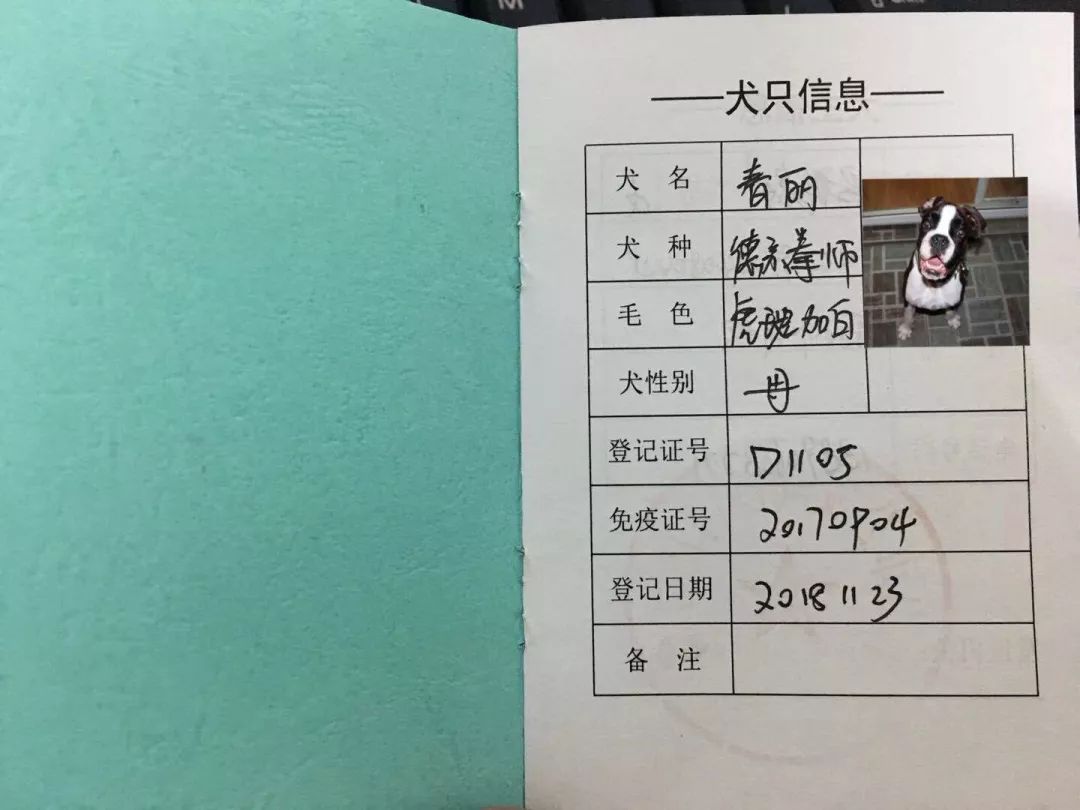 M
——犬只信息——
犬 名 春丽
犬 种 德系拳师
毛 色 虎斑加白
犬性别 母
登记证号 D1105
免疫证号 20170904
登记日期 2018 11 23
备 注